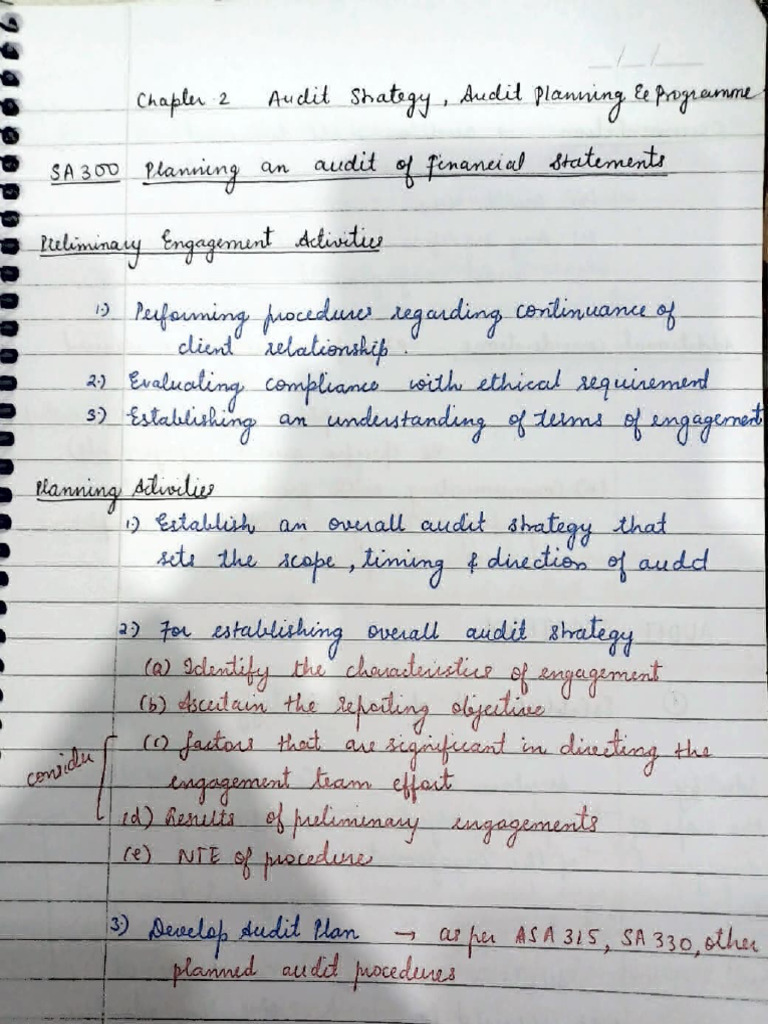 Chapter 2 Audit Strategy, Audit Planning & Programme
SA 300 Planning an audit of financial statements
Preliminary Engagement Activities
1) Performing procedures regarding continuance of
client relationship.
2) Evaluating compliance with ethical requirement
3) Establishing an understanding of terms of engagement
Planning Activities
1) Establish an overall audit strategy that
sets the scope, timing & direction of audit
2) For establishing overall audit strategy
(a) Identify the characteristics of engagement
(b) Ascertain the reporting objective
consider (c) factors that are significant in directing the
engagement team effort
(d) Results of preliminary engagements
(e) NTE of procedure
3) Develop Audit Plan → as per ASA 315, SA 330, other
planned audit procedures